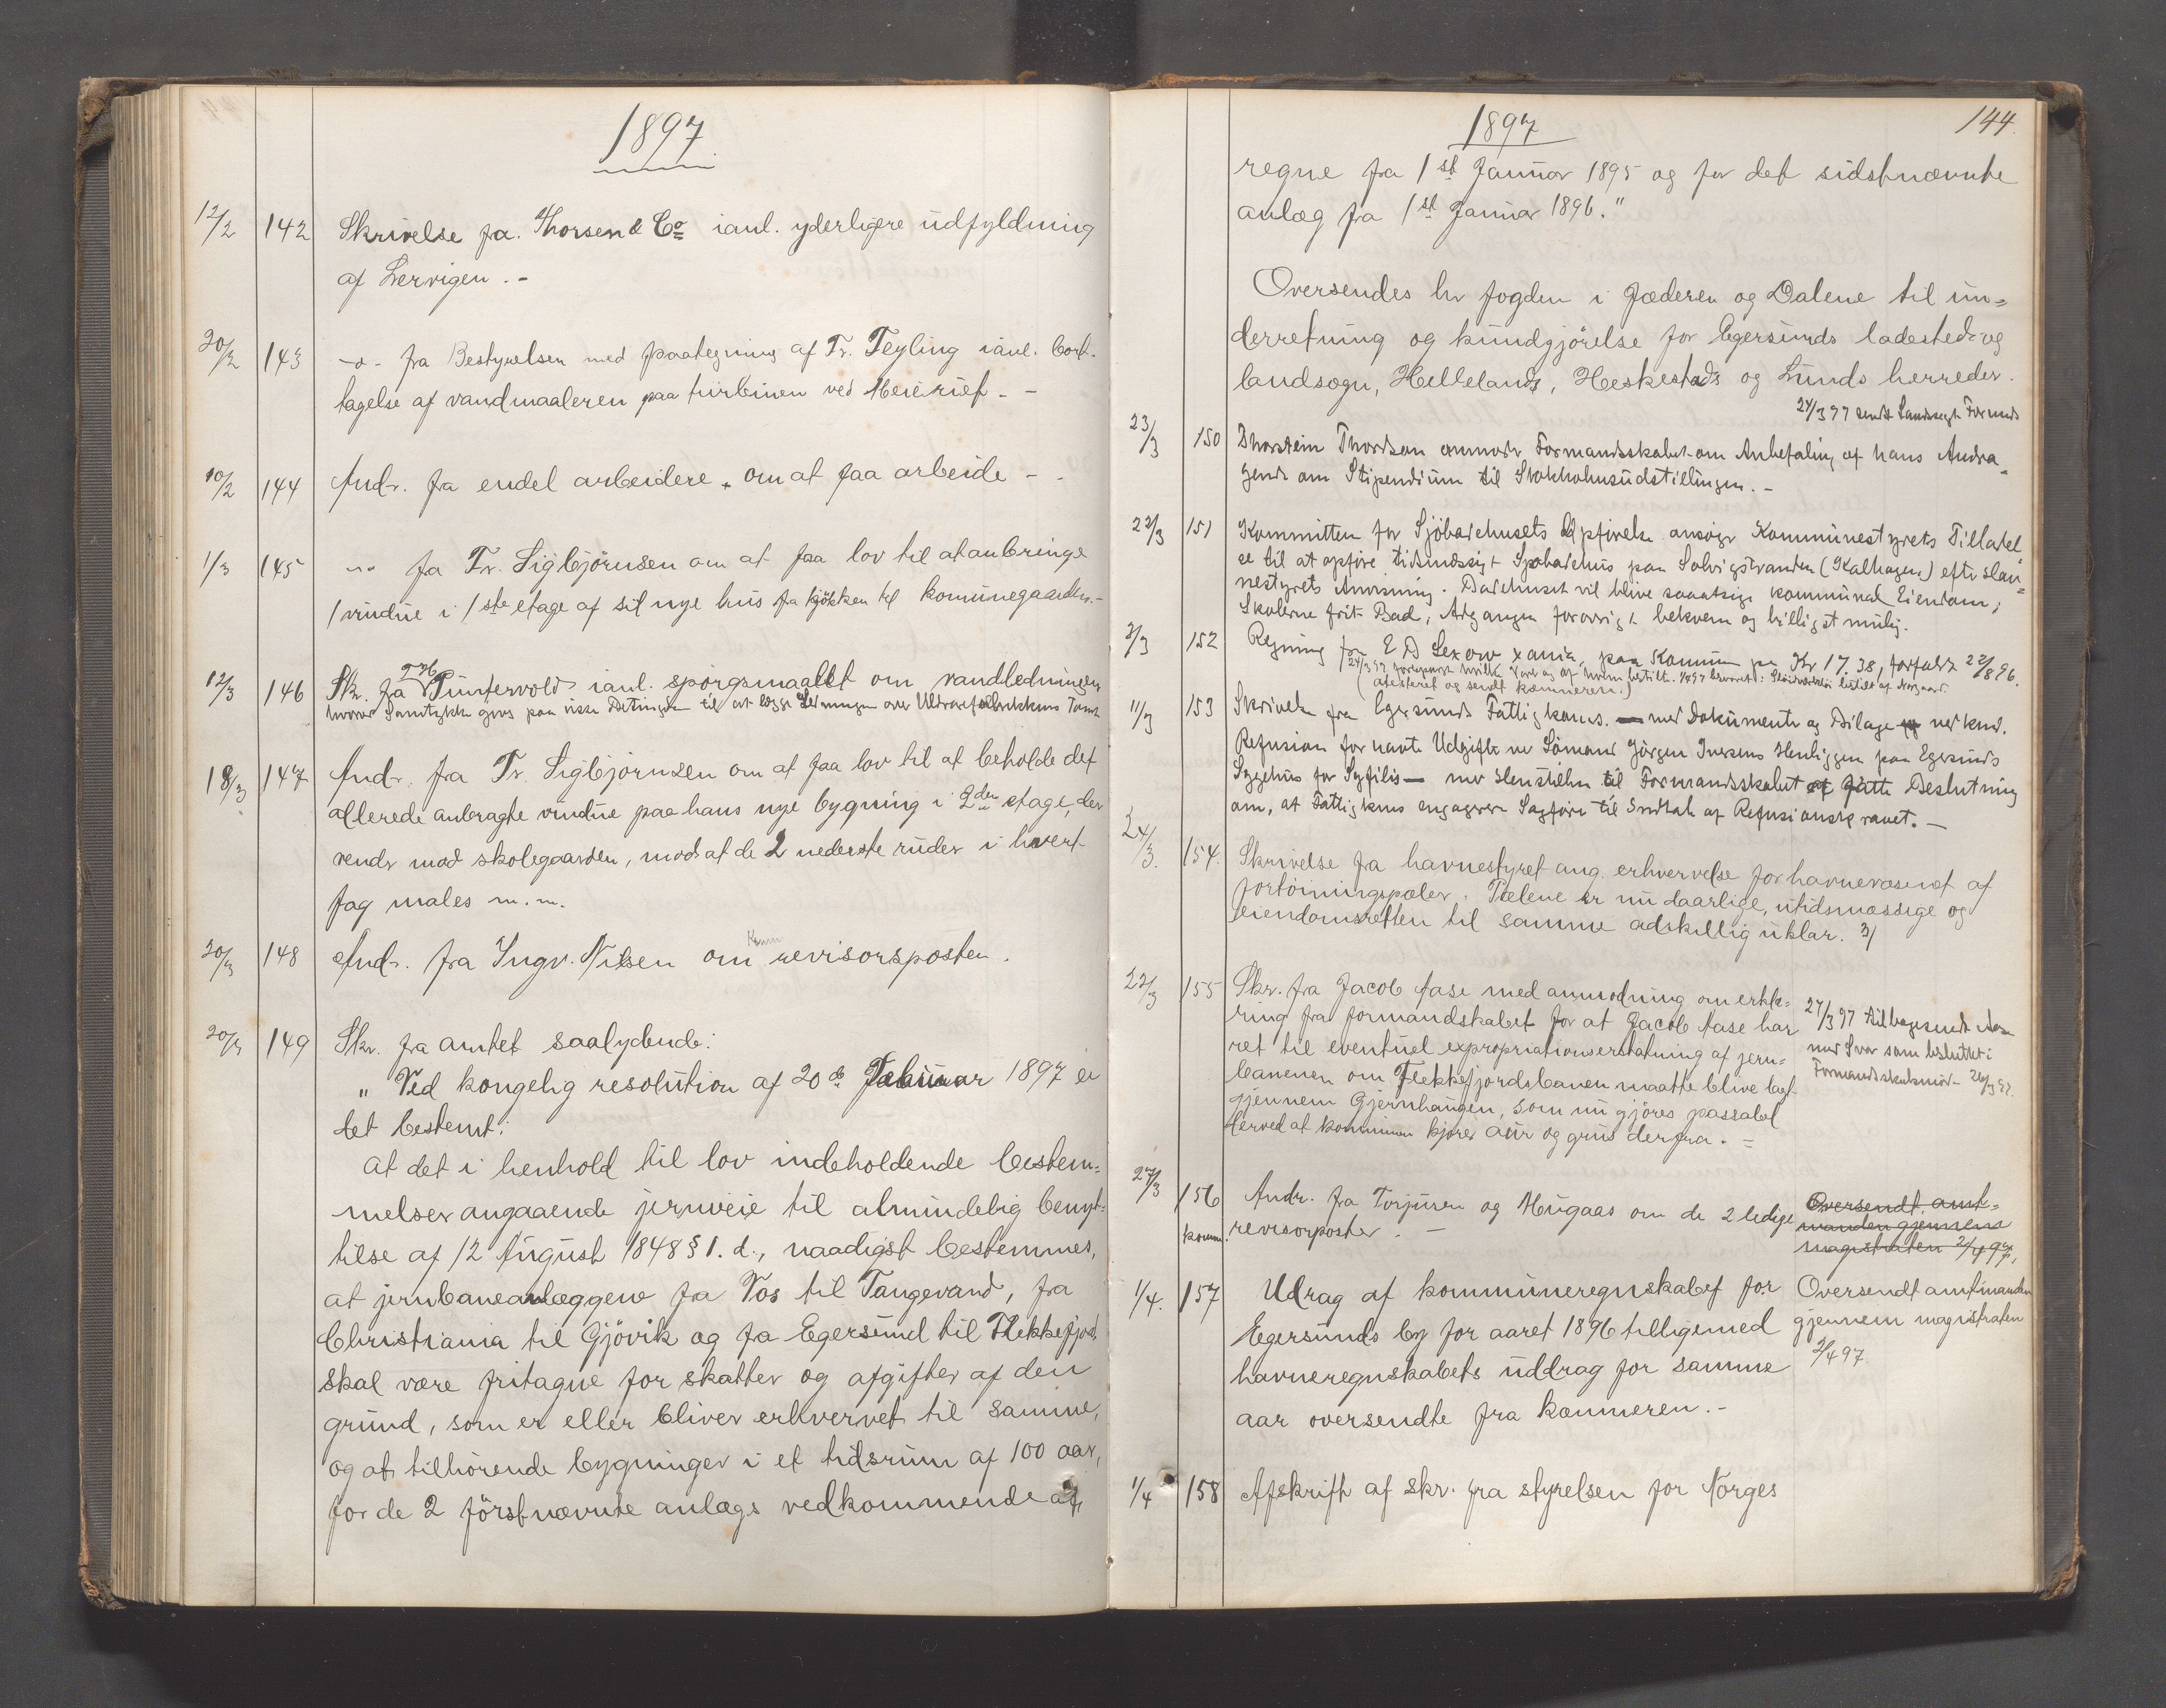 1897
12/2 142 Skrivelse fra Thorsen & Co ianl. yderligere udfyldning
af Lervigen. -
20/2 143 -o- fra Bestyrelsen med paategning af Fr. Feyling ianl. bort-
tagelse af vandmaaleren paa turbinen ved Meieriet. -
10/2 144 Andr. fra endel arbeidere om at faa arbeide -
1/3 145 -"- fra Fr. Sigbjörnsen om at faa lov til at anbringe
1 vindue i 1ste etage af sit nye hus fra kjökken til komunegaarden. -
12/3 146 Skr. fra Puntervold ianl. spörgsmaalet om vandledningen
hvorved Samtykke gives paa visse Betingelser til at lægge Ledningen over Uldvarefabrikkens Tomt
18/3 147 Andr. fra Fr. Sigbjörnsen om at faa lov til at beholde det
allerede anbragte vindue paa hans nye bygning i 2den etage, der
vender mod skolegaarden, mod at de 2 nederste ruder i hvert
fag males m. m.
20/3 148 Andr. fra Ingv. Nilsen om Kom revisorsposten.
20/3 149 Skr. fra amtet saalydende:
" Ved kongelig resolution af 20de Februar 1897 er
det bestemt:
at det i henhold til lov indeholdende bestem=
melser angaaende jernveie til almindelig benyt-
telse af 12 August 1848 § 1. d., naadigst bestemmes,
at jernbaneanlæggene fra Vos til Taugevand, fra
Christiania til Gjövik og fra Egersund til Flekkefjord,
skal være fritagne for skatter og afgifter af den
grund, som er eller bliver erhvervet til samme,
og at tilhörende bygninger i et tidsrum af 100 aar,
for de 2 förstnævnte anlægs vedkommende at
1897 144
regne fra 1st Januar 1895 og for det sidstnævnte
anlæg fra 1st Januar 1896."
Oversendes hr fogden i Jæderen og Dalene til un=
derretning og kundgjörelse for Egersunds ladested og
landsogn, Hellelands, Heskestads og Lunds herreder.
24/3 97 sendt Landsogts Formand
23/3 150 Thorstein Thordsen anmoder Formandsskabet om Anbefaling af hans Andra=
gende om Stipendium til Stokholmsudstillingen. -
22/3 151 Kommitten for Sjöbadehusets Opförelse ansöger Kommunestyrets Tilladel
se til at opföre tidsmæssigt Sjøbadehus paa Solvigstranden (Kalhagen) efter Hav=
nestyrets Anvisning. Badehuset vil blive saaatsige kommunal Eiendom;
Skolerne frit Bad, Adgangen forövrigt bekvem og billigst mulig.
2/3 152 Regning fra E D Lexow xania, paa Kommun paa Kr 17.38, forfaldt 22/8 96.
(attesteret og sendt kæmneren.)
11/3 153 Skrivelse fra Egersunds Fattigkoms. med Dokumenter og Bilage vedkmd.
Refusion for havte Udgifter ved Sömand Jörgen Iversens Henliggen paa Egersunds
Sygehus for Syfilis — med Henstillen til Formandsskabet at fatte Beslutning
om, at Fattigkms engagerer Sagförer til Indtale af Refusionskravet. -
24/3. 154. Skrivelse fra havnestyret ang. erhvervelse for havnevæsenet af
fortöiningspæler. Pælene er nu daarlige, utidsmæssige og
eiendomsretten til samme adskillig uklar. 3/
22/3 155 Skr. fra Jacob Aase med anmodning om erklæ=
ring fra formandskabet for at Jacob Aase har
ret til eventuel expropriationserstatning af jern=
banen om Flekkefjordsbanen maatte blive lagt
gjennem Gjernhaugen, som nu gjöres passabel
derved at kommunen kjörer aur og grus derfra. =
27/3 97 tilbagesendt Aase
med Svar som besluttet i
Formandsskabsmöde 26/3 97.
27/3 156 Andr. fra Torjusen og Hugaas om de 2 ledige
komm. revisorposter. -
Oversendt amt-
manden gjennem
magistraten 2/4 97,
1/4. 157 Udrag af kommuneregnskabet for
Egersunds by for aaret 1896 tilligemed
havneregnskabets uddrag for samme
aar oversendte fra kæmneren. -
Oversendt amtmanden
gjennem magistraten
2/4 97.
1/4 158 Afskrift af skr. fra styrelsen for Norges